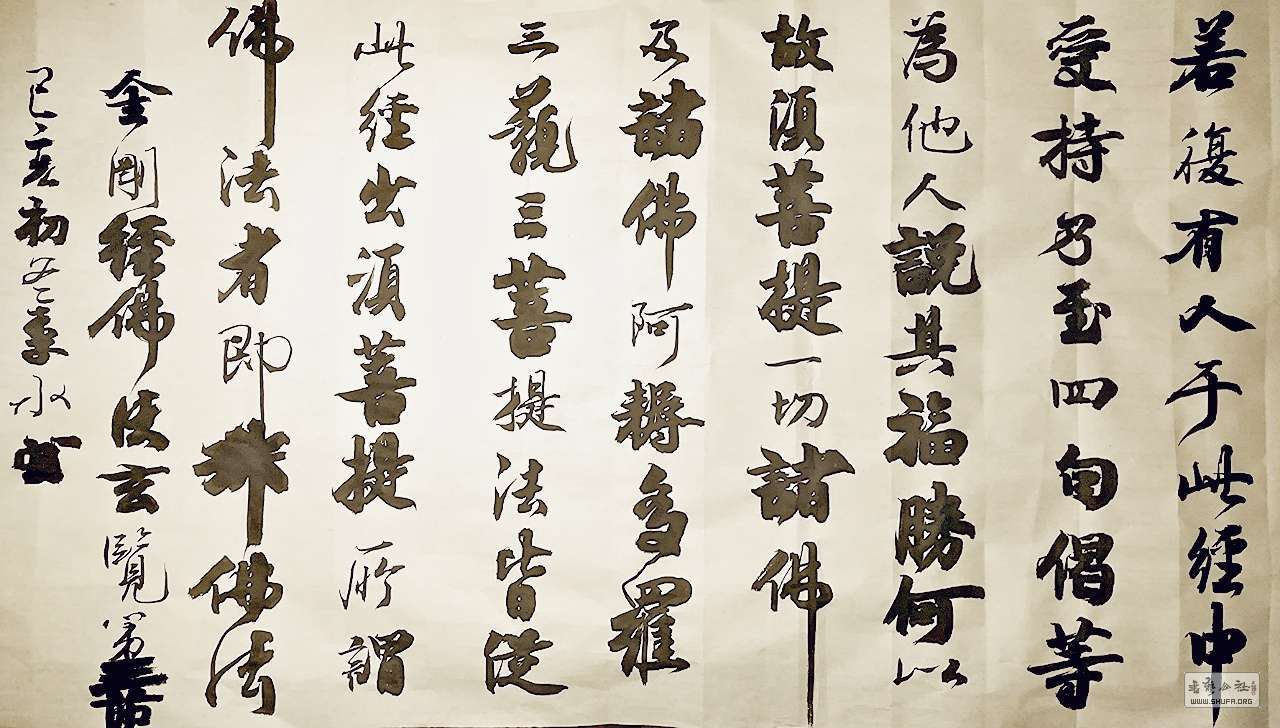 若復有人于此經中
受持乃至四句偈等
為他人説其福勝何以
故須菩提一切諸佛
及諸佛阿耨多羅
三藐三菩提法皆從
此經出須菩提所謂
佛法者即非佛法
金剛經佛法玄覽
己亥初冬
書藝公社
WWW.SHUFA.ORG